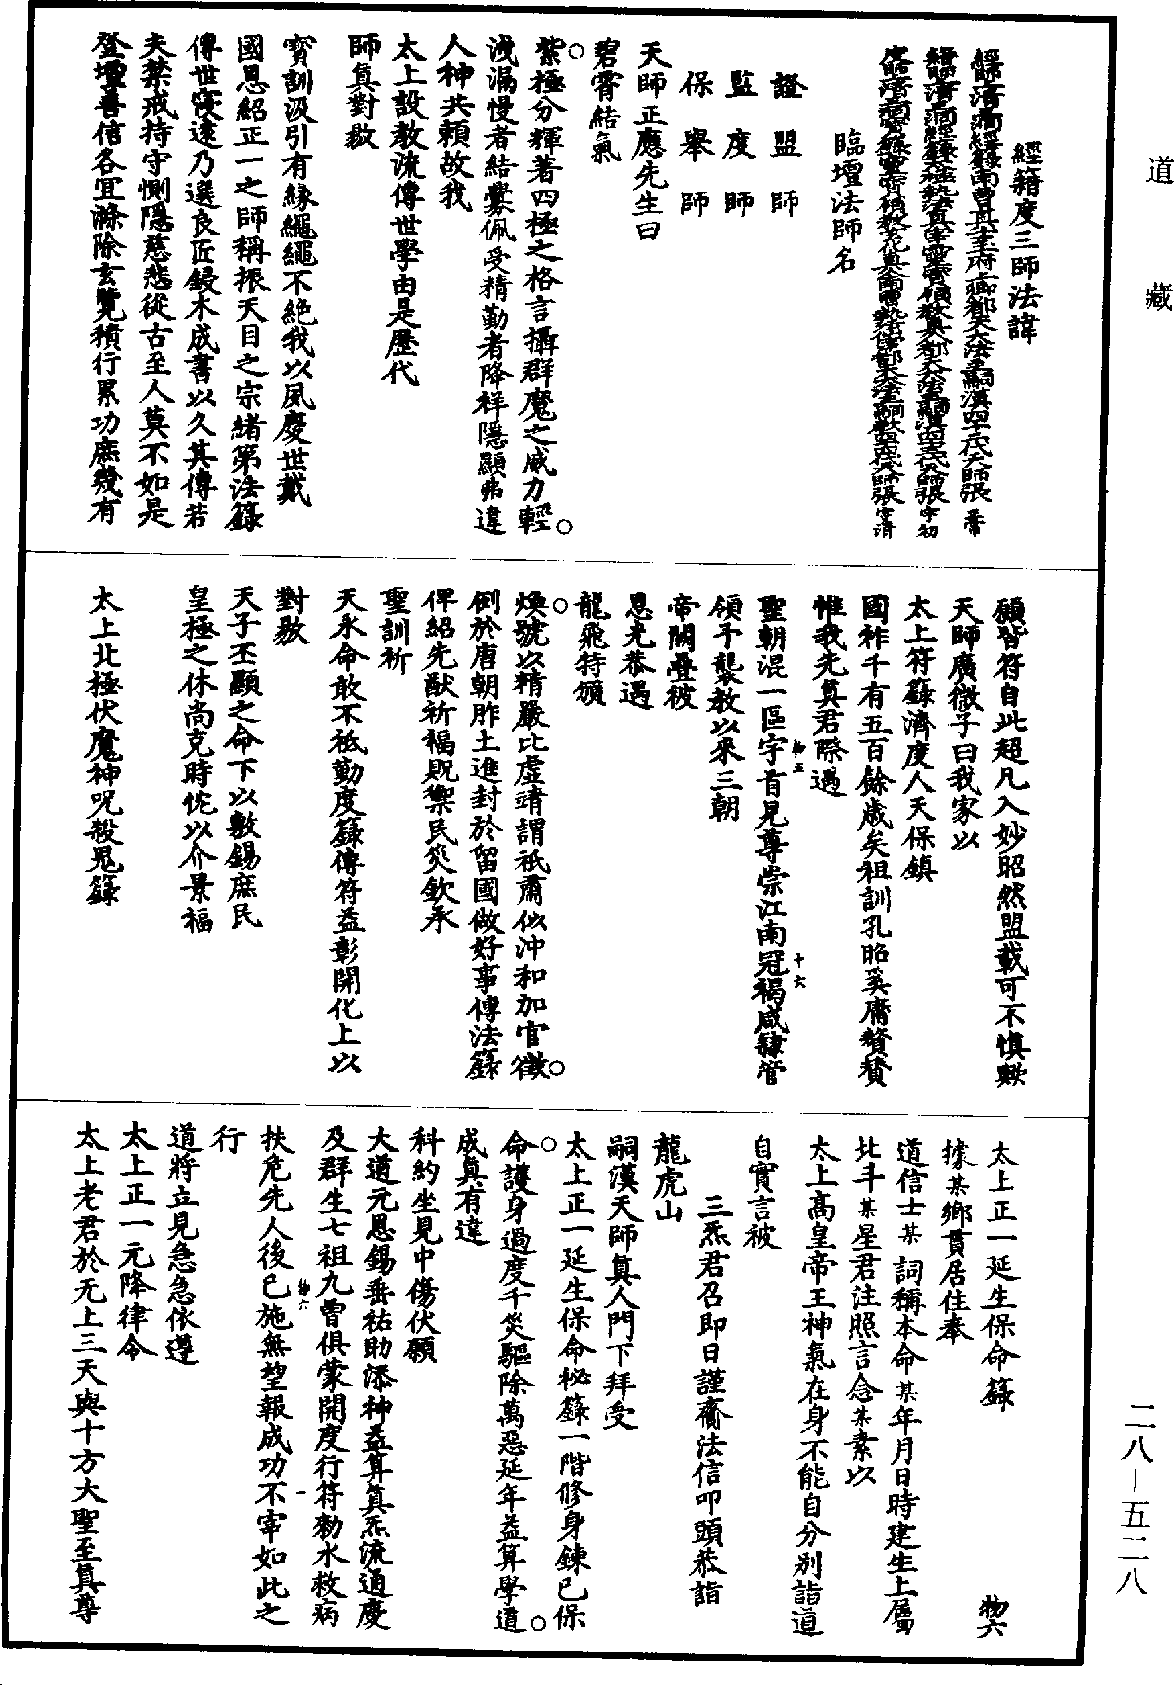 道藏
經籍度三師法諱
臨壇法師名
證盟師
監度師
保舉師
天師正應先生曰
碧霄結氣
紫極分輝著四極之格言攝群魔之威力輕
洩漏慢者結釁佩受精勤者降祥隱顯弗違
人神共賴故我
太上設教流傳世學由是歷代
師真對敭
寶訓汲引有緣繩繩不絕我以夙慶世戴
國恩紹正一之師稱振天目之宗緒第法籙
傳世寖遠乃選良匠鋟木成書以久其傳若
夫禁戒持守惻隱慈悲從古至人莫不如是
登壇善信各宜滌除玄覽積行累功庶幾有
願皆符自此超凡入妙昭然盟載可不慎歟
天師廣微子曰我家以
太上符籙濟度人天保鎮
國祚千有五百餘歲矣祖訓孔昭奚庸贅贅
惟我先真君際遇
聖朝混一區宇首見尊崇江南冠褐咸隸管
領予襲教以來三朝
帝闕疊被
恩光恭遇
龍飛特頒
煥號以精嚴比虛靖謂祇肅似沖和加官徵
例於唐朝胙土進封於留國做好事傳法籙
俾紹先猷祈福貺禦民災欽承
聖訓祈
天永命敢不祗勤度籙傳符益彰開化上以
對敭
天子丕顯之命下以敷錫庶民
皇極之休尚克時忱以介景福
太上北極伏魔神呪殺鬼籙
太上正一延生保命籙
物六
據某鄉貫居住奉
道信士某 詞稱本命某年月日時建生上屬
北斗某星君注照言念某素以
太上高皇帝王神氣在身不能自分別詣道
自實言被
三炁君召即日謹齎法信叩頭恭詣
龍虎山
嗣漢天師真人門下拜受
太上正一延生保命秘籙一階修身鍊己保
命護身過度千災驅除萬惡延年益算學道
成真有違
科約坐見中傷伏願
大道元恩錫垂祐助添神益算箕炁流通慶
及群生七祖九曾俱蒙開度行符勑水救病
扶危先人後己施無望報成功不宰如此之
行
道將立見急急依遵
太上正一元降律令
太上老君於无上三天與十方大聖至真尊
二八—五二八